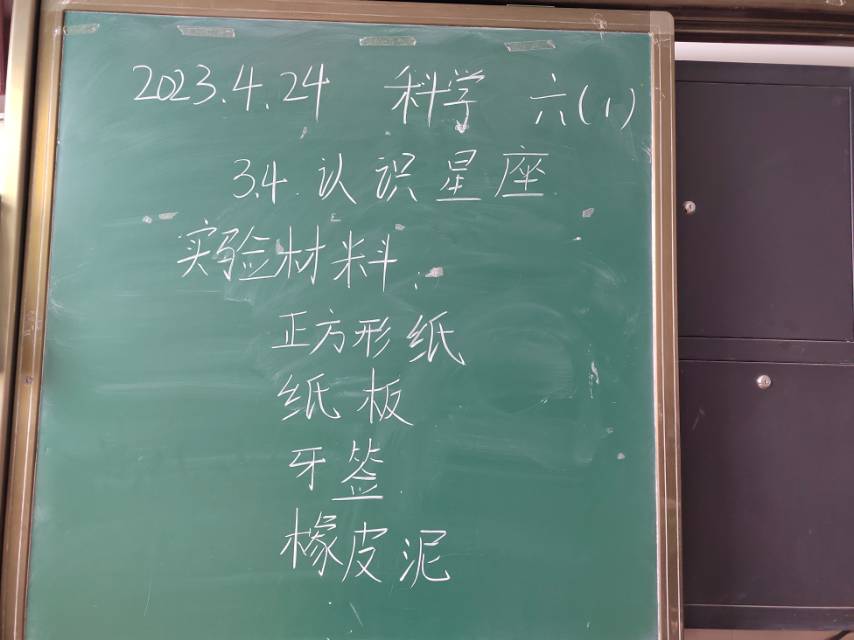 2023.4.24 科学 六(1)
3.4 认识星座
实验材料：
正方形纸
纸板
牙签
橡皮泥